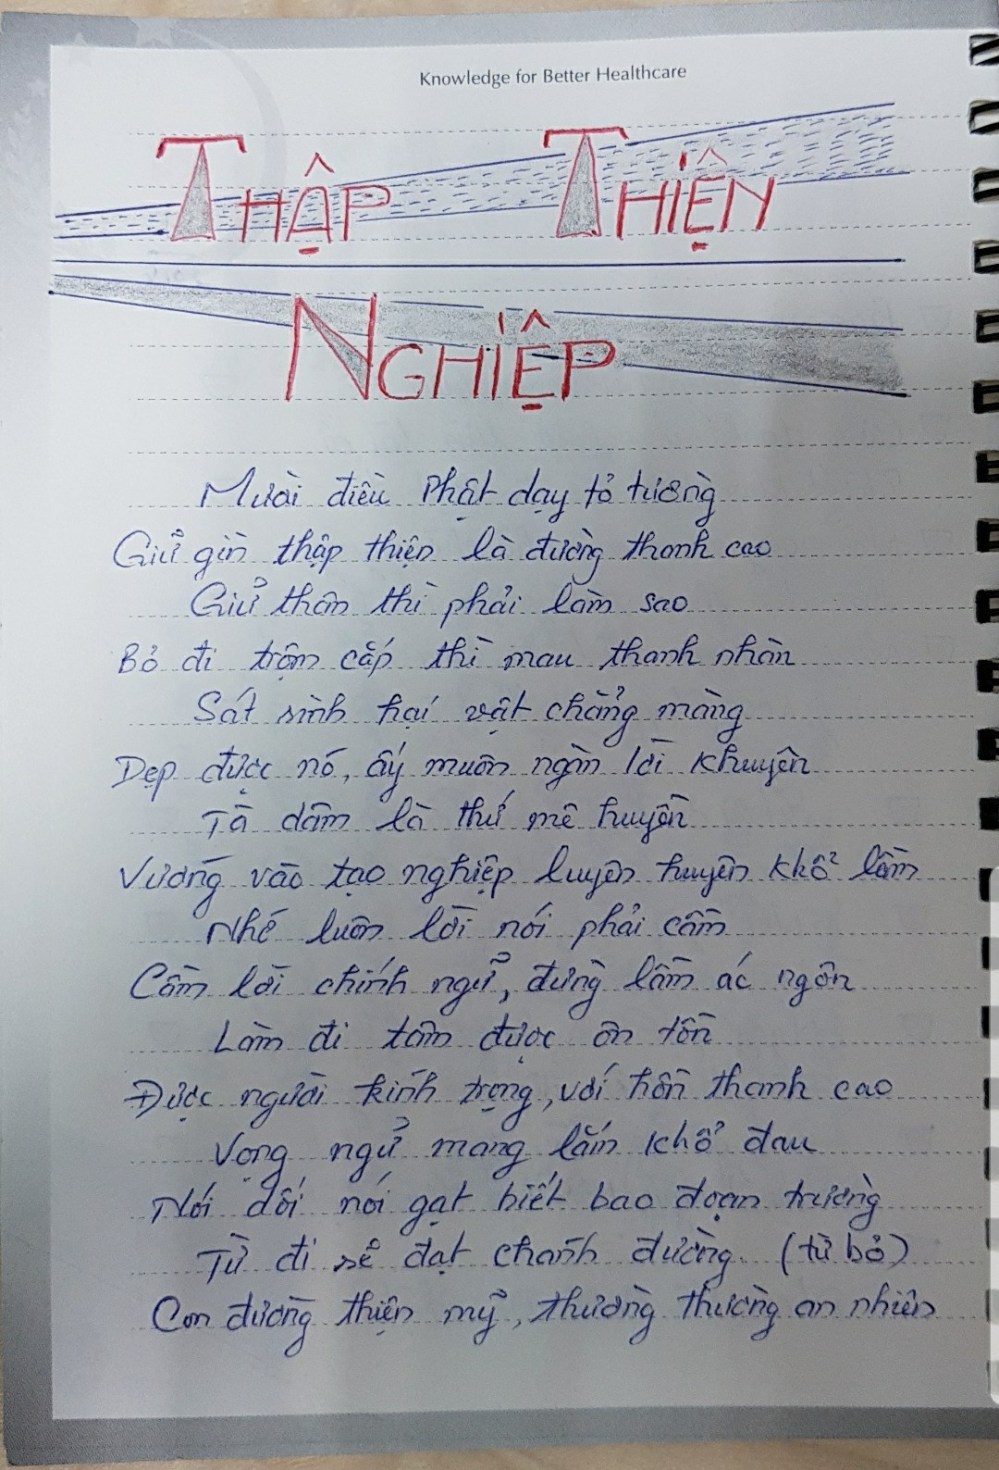 Knowledge for Better Healthcare
THẬP THIỆN
NGHIỆP
Mười điều Phật dạy tỏ tường
Giữ gìn thập thiện là đường thanh cao
Giữ thân thì phải làm sao
Bỏ đi trộm cắp thì mau thanh nhàn
Sát sinh hại vật chẳng màng
Dẹp được nó, ấy muôn ngàn lời khuyên
Tà dâm là thứ mê huyền
Vướng vào tạo nghiệp luyên huyên khổ lầm
Nhớ luôn lời nói phải cầm
Cầm lời chính ngữ, đừng lầm ác ngôn
Làm đi tâm được ôn tồn
Được người kính trọng, với hồn thanh cao
Vọng ngữ mang lắm khổ đau
Nói dối nói gạt biết bao đoạn trường
Từ đi sẽ đạt chánh đường. (từ bỏ)
Con đường thiện mỹ, thường thường an nhiên